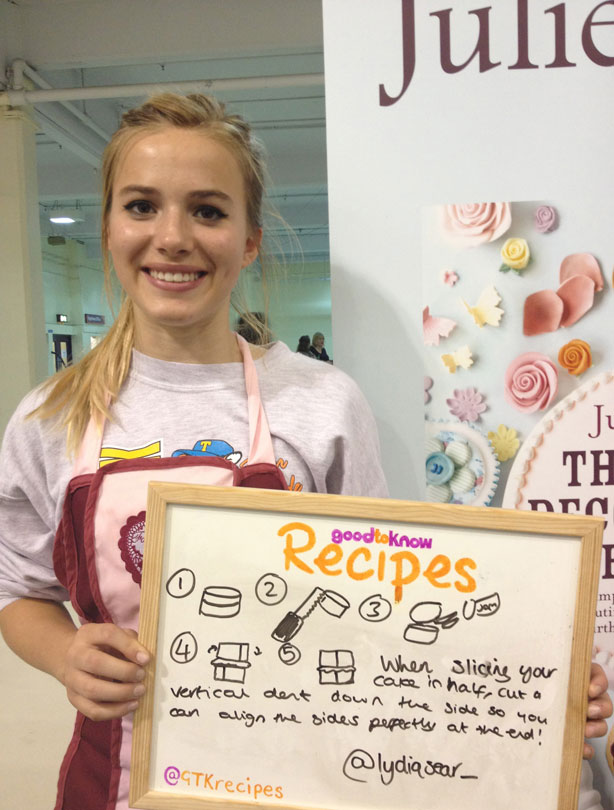 Julie
goodtoknow
Recipes
1 2 3 Jam
4 5 When slicing your
cake in half, cut a
vertical dent down the side so you
can align the sides perfectly at the end!
@lydiasear_
@GTKrecipes
T
Ju
TH